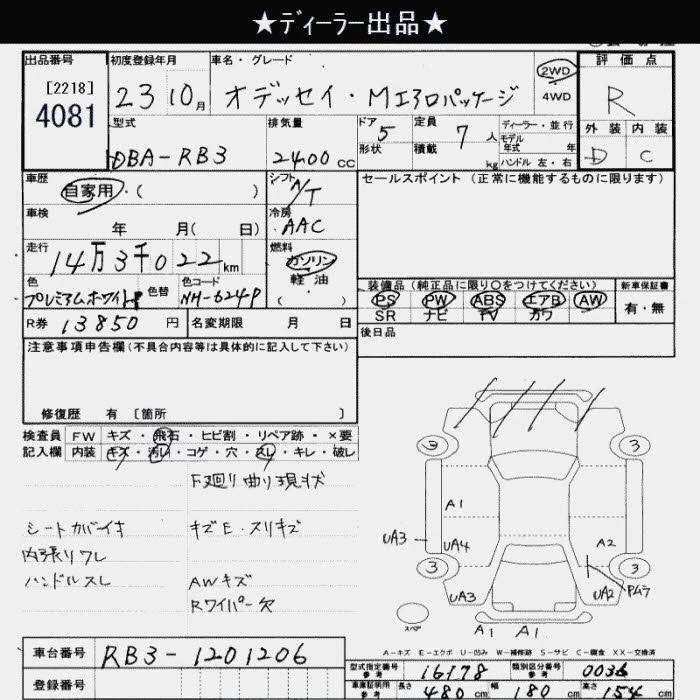 ★ディーラー出品★
出品番号 初度登録年月 車名・グレード 評価点
[2218]
4081
23 10月 オデッセイ・Mエアロパッケージ 2WD 4WD R
型式 排気量 ドア 定員 ディーラー・並行 外装 内装
DBA-RB3 2400 CC 5 7人 モデル年式 年
形状 積載 kg ハンドル 左・右 D C
車歴 シフト セールスポイント (正常に機能するものに限ります)
自家用・( ) A/T
車検 冷房
年 月( 日) AAC
走行 燃料
14万3千022km ガソリン
軽油
色 色替 色コード ( )
プレミアムホワイトP NH-624P
装備品(純正品に限り○をつけてください) 新車保証書
PS PW ABS エアB AW 有・無
SR ナビ TV カワ
R券 13850円 名変期限 月 日
後日品
注意事項申告欄(不具合内容等は具体的に記入して下さい)
修復歴 有 [箇所 ]
検査員 FW キズ・飛石・ヒビ割・リペア跡・×要
記入欄 内装 キズ・汚レ・コゲ・穴・スレ・キレ・破レ
F廻り曲り現状
シートカバーイキ キズE・スリキズ
内張りワレ
ハンドルスレ AWキズ
Rワイパー欠
3 3
A1
UA3 UA4 A2
3 3
UA3 UA2 Pムラ
スペア
A1 A1
A-キズ E-エクボ U-凹み W-補修跡 S-サビ C-腐食 XX-交換済
車台番号 RB3-1201206
登録番号
型式指定番号 参考 16178 類別区分番号 参考 0036
車庫証明用 参考 長さ 480cm 幅 180cm 高さ 154cm